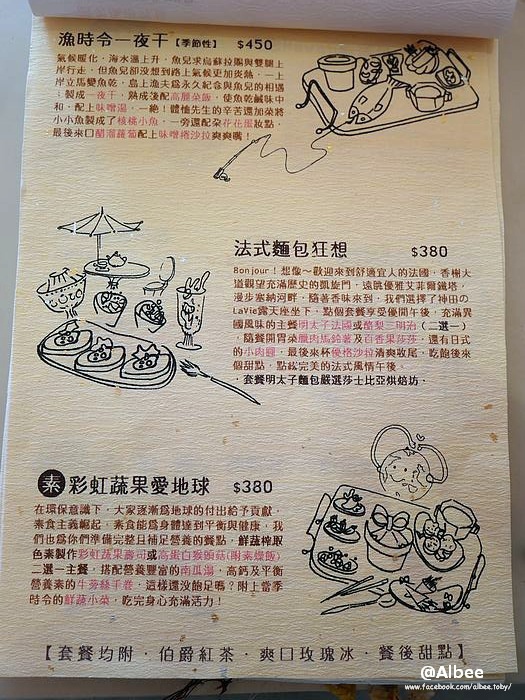 漁時令一夜干【季節性】 $450
氣候暖化,海水溫上升,魚兒求烏蘇拉賜與雙腿上
岸行走,但魚兒卻沒想到路上氣候更加炎熱,一上
岸立馬變魚乾,島上漁夫為永久紀念與魚兒的相遇
,製成一夜干,熟成後配高麗菜飯,使魚乾鹹味中
和,配上味噌湯,一絕!體恤先生的辛苦還加菜將
小小魚製成了核桃小魚,一旁還配朵花花蛋妝點,
最後來口醋溜蘿蔔配上味噌捲沙拉爽爽嘴!
法式麵包狂想 $380
Bonjour!想像~歡迎來到舒適宜人的法國,香榭大
道觀望充滿歷史的凱旋門,遠眺優雅艾菲爾鐵塔,
漫步塞納河畔,隨著香味來到,我們選擇了神田の
LaVie露天座坐下,點個套餐享受優閒午後,充滿異
國風味的主餐明太子法國或酪梨三明治(二選一)
,隨餐開胃菜臘肉馬鈴薯及百香果莎莎,還有日式
的小肉豆,最後來杯優格沙拉清爽收尾,吃飽後來
個甜點,點綴完美的法式風情午後。
·套餐明太子麵包嚴選莎士比亞烘焙坊·
素 彩虹蔬果愛地球 $380
在環保意識下,大家逐漸為地球的付出給予貢獻,
素食主義崛起,素食能為身體達到平衡與健康,我
們也為你們準備完整且補足營養的餐點,鮮蔬榨取
色素製作彩虹蔬果壽司或高蛋白猴頭菇(附素燥飯)
二選一主餐,搭配營養豐富的南瓜湯,高鈣及平衡
營養素的牛蒡絲手卷,這樣還沒飽足嗎?附上當季
時令的鮮蔬小菜,吃完身心充滿活力!
【套餐均附·伯爵紅茶·爽口玫瑰冰·餐後甜點】
@Albee
www.facebook.com/albee.toby/